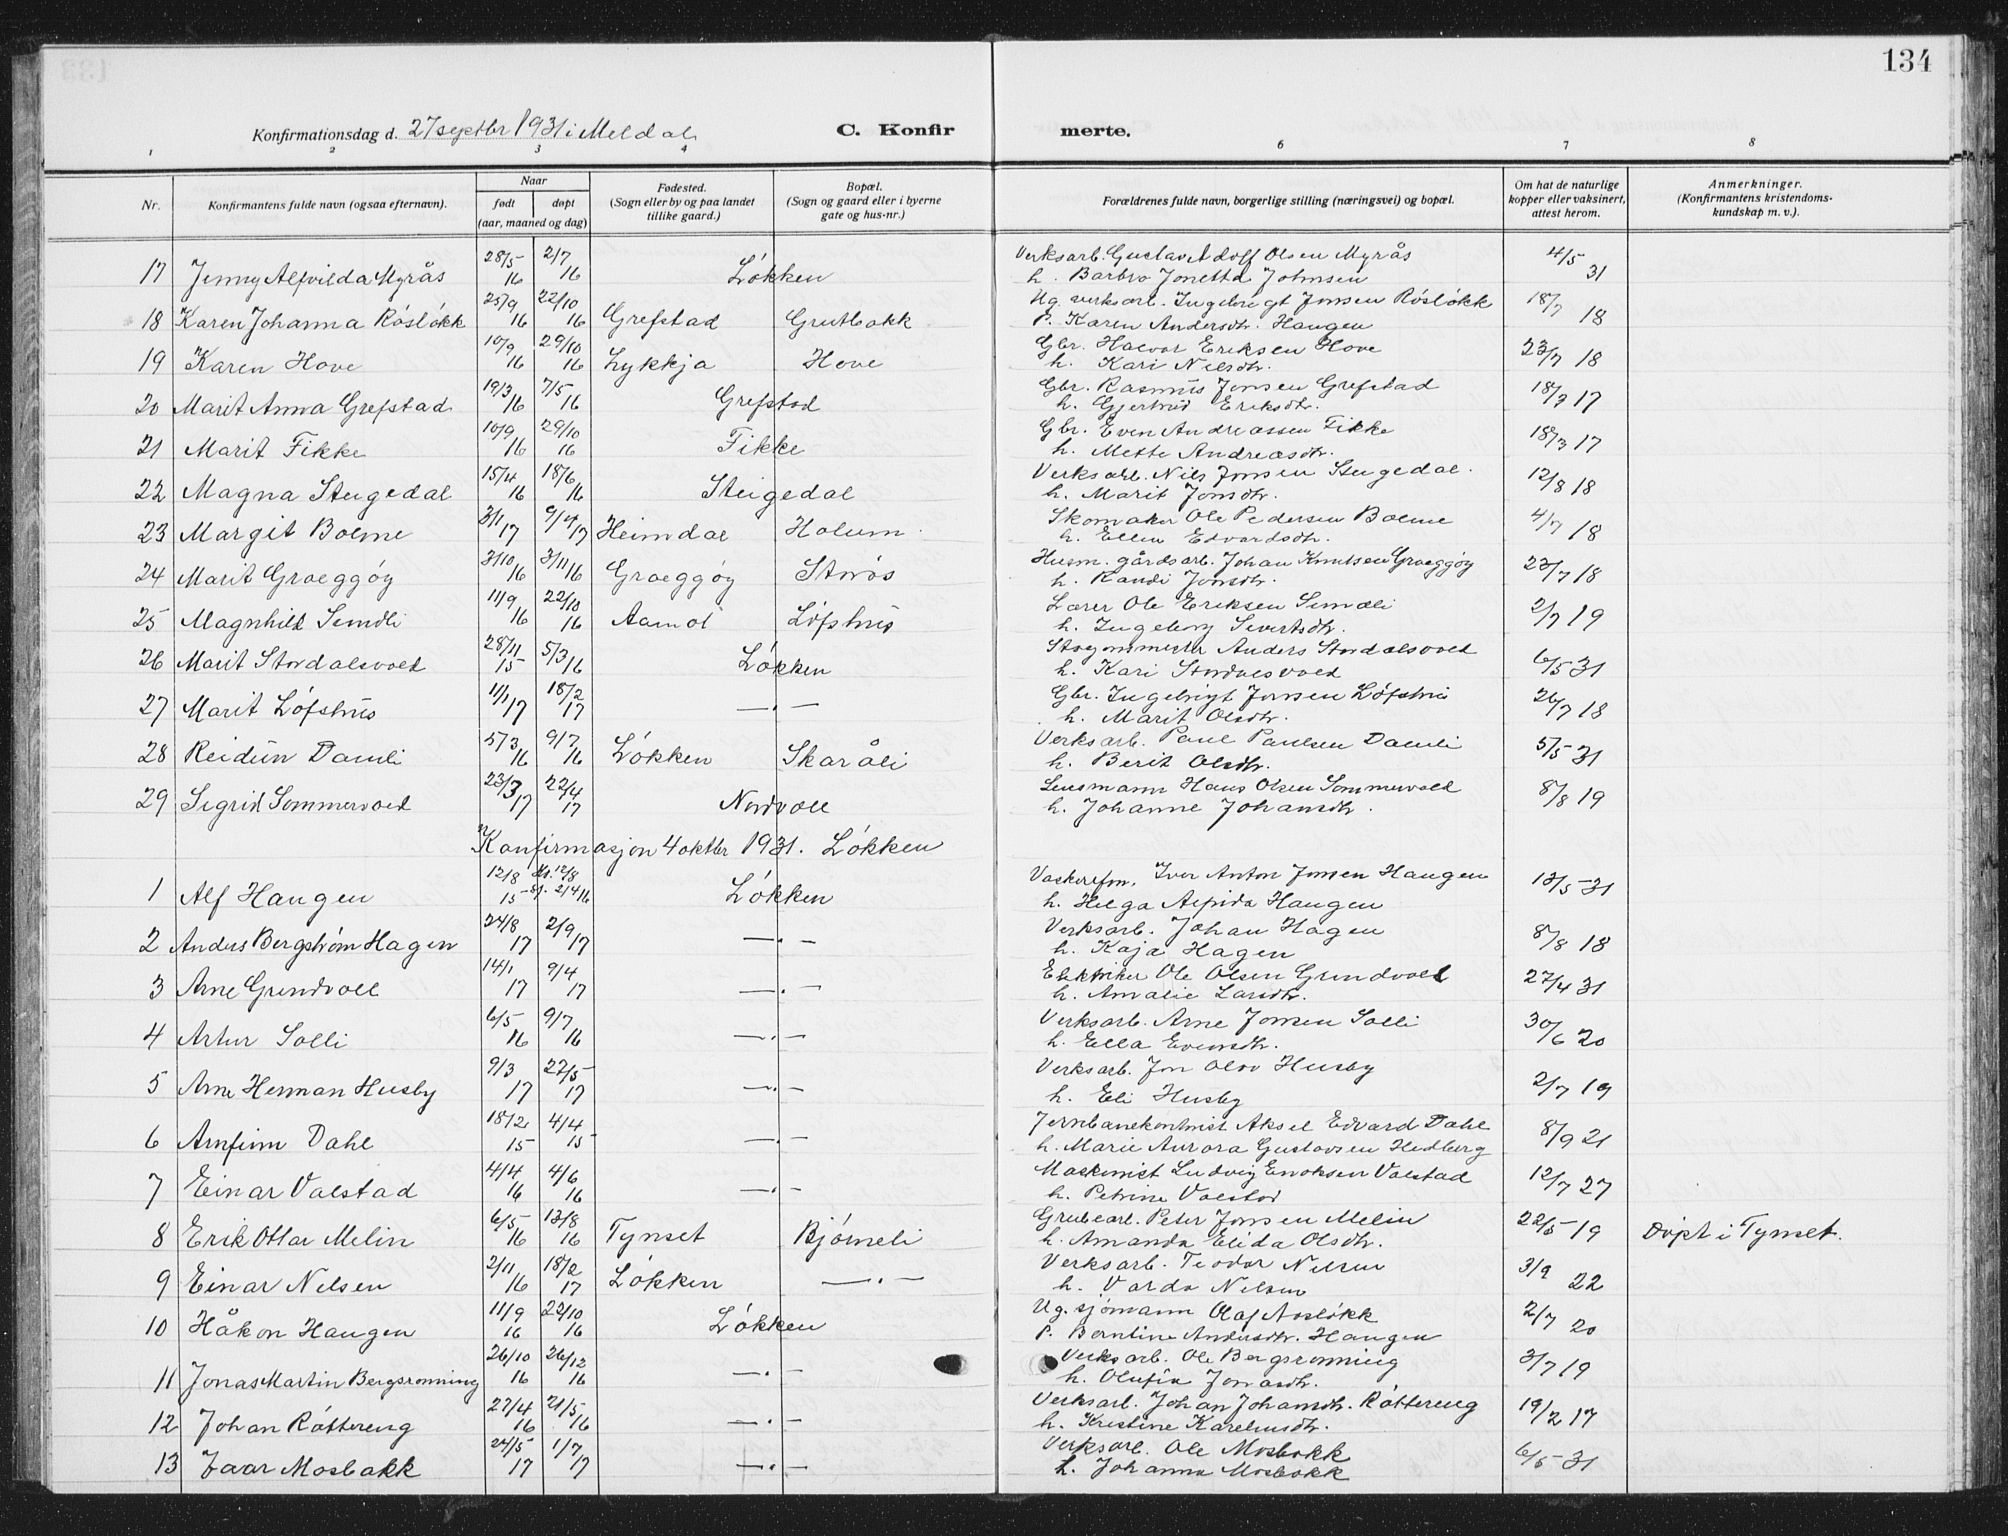 134
Konfirmationsdag d. 27 septbr 1931 i Meldal
C. Konfirmerte.
1 2 3 4 6 7 8
Nr. Konfirmantens fulde navn (ogsaa efternavn). Naar født døpt (aar, maaned og dag) Fødested. (Sogn eller by og paa landet tillike gaard.) Bopæl. (Sogn og gaard eller i byerne gate og hus-nr.) Forældrenes fulde navn, borgerlige stilling (næringsvei) og bopæl. Om hat de naturlige kopper eller vaksinert, attest herom. Anmerkninger. (Konfirmantens kristendomskundskap m. v.).
17 Jenny Alfvilda Myrås 28/5 16 2/7 16 Løkken Verksarb. Gustav Adolf Olsen Myrås 4/5 31
h. Barbro Jonetta Johnsen
18 Karen Johanna Røsløkk 25/9 16 22/10 16 Grefstad Grutbakk Ug. verksarb. Ingebrigt Jonsen Røsløkk 18/7 18
p. Karen Andersdtr. Haugen
19 Karen Hove 10/9 16 29/10 16 Lykkja Hove Gbr. Halvor Eriksen Hove 23/7 18
h. Kari Nilsdtr.
20 Marit Anna Grefstad 19/3 16 7/5 16 Grefstad Gbr. Rasmus Jonsen Grefstad 18/3 17
h. Gjertrud Eriksdtr.
21 Marit Fikke 10/9 16 29/10 16 Fikke Gbr. Even Andreassen Fikke 18/3 17
h. Mette Andreasdtr.
22 Magna Steigedal 15/4 16 18/6 16 Steigedal Verksarb. Nils Jonsen Steigedal. 12/8 18
h. Marit Jonsdtr.
23 Margit Bolme 3/1 17 9/4 17 Heimdal Holum. Skomaker Ole Pedersen Bolme 4/7 18
h. Ellen Edvardsdtr.
24 Marit Græggøy 3/10 16 3/11 16 Græggøy Storås Husm. gårdsarb. Johan Knutsen Græggøy 23/7 18
h. Randi Jonsdtr.
25 Magnhild Semdli 11/9 16 22/10 16 Aamot Løfshus Lærer Ole Eriksen Semdli 2/7 19
h. Ingeborg Sivertsdtr.
26 Marit Stordalsvold 28/11 15 5/3 16 Løkken Anders Stordalsvold 6/5 31
h. Kari Stordalsvold
27 Marit Løfshus 11/1 17 18/2 17 —„— Gbr. Ingebrigt Jonsen Løfshus 26/7 18
h. Marit Olsdtr.
28 Reidun Damli 5/3 16 9/7 16 Løkken Skaråli Verksarb. Paul Paulsen Damli 5/5 31
h. Berit Olsdtr.
29 Sigrid Sommervold 23/3 17 22/4 17 Nordvoll Lensmann Hans Olsen Sommervold 8/8 19
h. Johanne Johansdtr.
Konfirmasjon 4 oktbr 1931. Løkken
1 Alf Haugen 12/8 15 Hj. 12/8 St. 2/4 16 Løkken Iver Anton Jonsen Haugen 13/5 31
h. Helga Alpida Haugen
2 Anders Bergstrøm Hagen 24/8 17 2/9 17 —„— Verksarb. Johan Hagen 8/8 18
h. Kaja Hagen
3 Arne Grendvoll 14/1 17 9/4 17 —„— Elektriker Ole Olsen Grendvoll 27/4 31
h. Amalie Larsdtr.
4 Artur Solli 6/5 16 9/7 16 —„— Verksarb. Arne Jonsen Solli 30/6 20
h. Ella Evensdtr.
5 Arne Herman Husby 9/3 17 27/5 17 —„— Verksarb. Jon Olav Husby 2/7 19
h. Eli Husby
6 Arnfinn Dahl 18/2 15 4/4 15 —„— Jernbanekontorist Aksel Edvard Dahl 8/9 21
h. Marie Aurora Gustavsen Hedberg
7 Einar Valstad 4/4 16 4/6 16 —„— Maskinist Ludvig Enoksen Valstad 12/7 27
h. Petrine Valstad
8 Erik Ottar Melin 6/5 16 13/8 16 Tynset Bjørneli Grubearb. Peter Jonsen Melin 22/5 19 Døpt i Tynset.
h. Amanda Elida Olsdtr.
9 Einar Nilsen 2/11 16 18/2 17 Løkken —„— Verksarb. Teodor Nilsen 3/9 22
h. Varda Nilsen
10 Håkon Haugen 11/9 16 22/10 16 Løkken Ug. sjømann Olaf Aasløkk 2/7 20
p. Berntine Andersdtr. Haugen
11 Jonas Martin Bergsrønning 26/10 16 26/12 16 —„— Verksarb. Ole Bergsrønning 3/7 19
h. Olufia Jonasdtr.
12 Johan Røttereng 27/4 16 21/5 16 —„— Verksarb. Johan Johansdtr. Røttereng 19/2 17
h. Kristine Karelusdtr.
13 Ivar Mosbakk 24/5 17 1/7 17 —„— Verksarb. Ole Mosbakk 6/5 31
h. Johanna Mosbakk